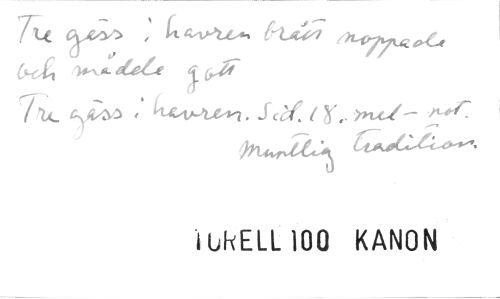 Tre gäss i havren brått noppade
och mådde gott
Tre gäss i havren. Sid. 18. mel-not.
Muntlig tradition.
TURELL 100 KANON